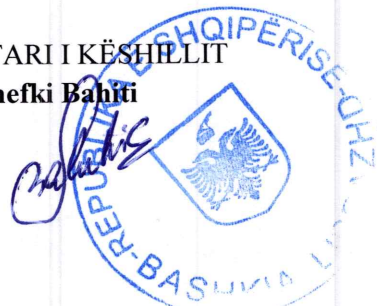 TARI I KËSHILLIT
hefki Bahiti
REPUBLIKA E SHQIPËRISE-
-BASHKIA